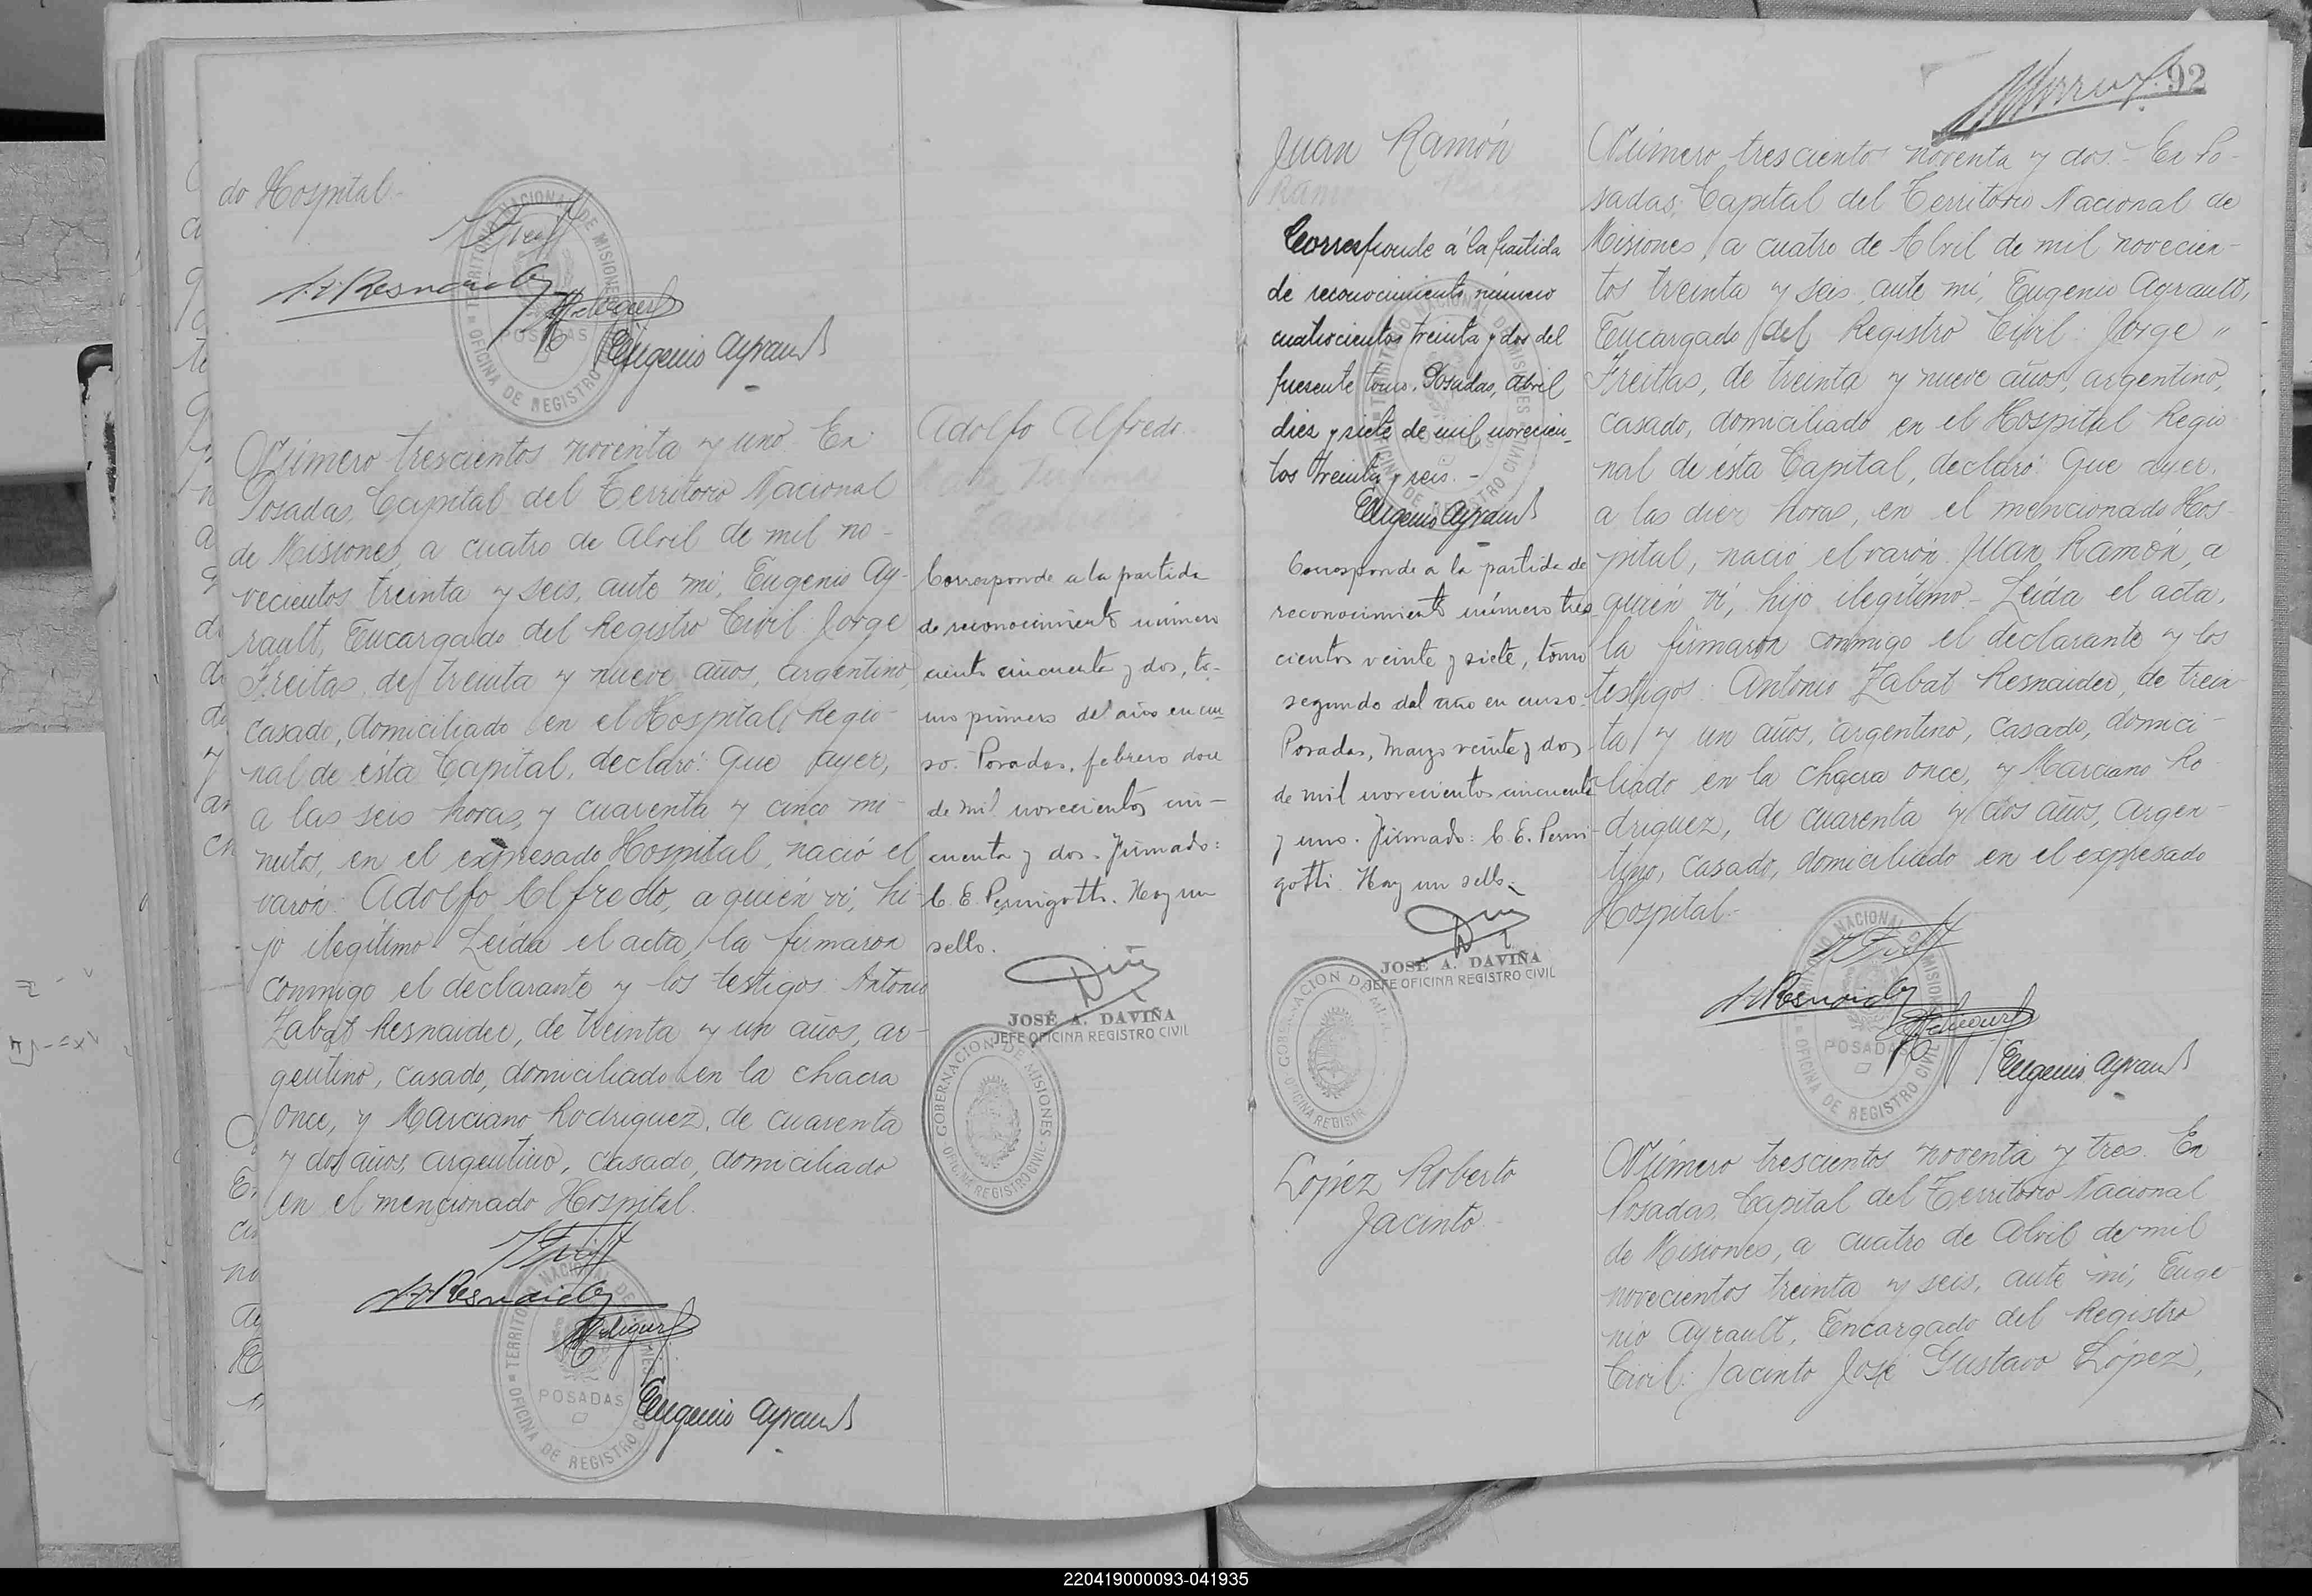 do Hospital.-
Eugenio Ayrault
Número trescientos noventa y uno. En
Posadas, Capital del Territorio Nacional
de Misiones, a cuatro de Abril de mil no-
vecientos treinta y seis, ante mí, Eugenio Ay-
rault, Encargado del Registro Civil: Jorge
Freitas, de treinta y nueve años, argentino,
casado, domiciliado en el Hospital Regio-
nal de ésta Capital, declaró: Que ayer,
a las seis horas, y cuarenta y cinco mi-
nutos, en el expresado Hospital, nació el
varón: Adolfo Alfredo, a quién ví, hi-
jo ilegítimo.- Leída el acta, la firmaron
conmigo el declarante y los testigos: Antonio
Zabat Resnaider, de treinta y un años, ar-
gentino, casado, domiciliado en la chacra
once, y Marciano Rodriguez, de cuarenta
y dos años, argentino, casado, domiciliado
en el mencionado Hospital.
Eugenio Ayrault
TERRITORIO NACIONAL DE MISIONES
POSADAS
OFICINA DE REGISTRO CIVIL
Adolfo Alfredo
Corresponde a la partida
de reconocimiento número
ciento cincuenta y dos, to-
mo primero del año en cur-
so. Posadas, febrero doce
de mil novecientos cin-
cuenta y dos. Firmado:
C. E. Pernigotti. Hay un
sello.
JOSÉ A. DAVIÑA
JEFE OFICINA REGISTRO CIVIL
GOBERNACION DE MISIONES
OFICINA REGISTRO CIVIL
92
Juan Ramón
Corresponde á la partida
de reconocimiento número
cuatrocientos treinta y dos del
presente tomo. Posadas, Abril
diez y siete de mil novecien-
tos treinta y seis.-
Eugenio Ayrault
Corresponde a la partida de
reconocimiento número tres-
cientos veinte y siete, tomo
segundo del año en curso.
Posadas, Marzo veinte y dos
de mil novecientos cincuenta
y uno. Firmado: C. E. Perni-
gotti. Hay un sello.
JOSÉ A. DAVIÑA
JEFE OFICINA REGISTRO CIVIL
López Roberto
Jacinto
Número trescientos noventa y dos.- En Po-
sadas, Capital del Territorio Nacional de
Misiones, a cuatro de Abril de mil novecien-
tos treinta y seis, ante mí, Eugenio Ayrault,
Encargado del Registro Civil: Jorge "
Freitas, de treinta y nueve años, argentino,
casado, domiciliado en el Hospital Regio
nal de ésta Capital, declaró: Que ayer,
a las diez horas, en el mencionado Hos-
pital, nació el varón: Juan Ramón, a
quién ví, hijo ilegítimo.- Leída el acta,
la firmaron conmigo el declarante y los
testigos: Antonio Zabat Resnaider, de trein-
ta y un años, argentino, casado, domici-
liado en la chacra once, y Marciano Ro-
driguez, de cuarenta y dos años, argen-
tino, casado, domiciliado en el expresado
Hospital.-
Eugenio Ayrault
Número trescientos noventa y tres. En
Posadas, Capital del Territorio Nacional
de Misiones, a cuatro de Abril de mil
novecientos treinta y seis, ante mí, Euge-
nio Ayrault, Encargado del Registro
Civil: Jacinto José Gustavo López,
220419000093-041935